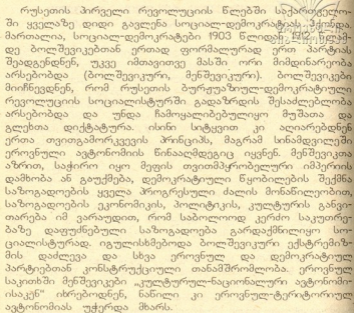 რუსეთის პირველი რევოლუციის წლებში საქართველო-
ში ყველაზე დიდი გავლენა სოციალ-დემოკრატიას ჰქონდა.
მართალია, სოციალ-დემოკრატები 1903 წლიდან 1912 წლამ-
დე ბოლშევიკებთან ერთად ფორმალურად ერთ პარტიას
შეადგენდნენ, უკვე იმთავითვე მასში ორი მიმდინარეობა
არსებობდა (ბოლშევიკური, მენშევიკური). ბოლშევიკები
მიიჩნევდნენ, რომ რუსეთის ბურჟუაზიულ-დემოკრატიული
რევოლუციის სოციალისტურში გადაზრდის შესაძლებლობა
არსებობდა და უნდა ჩამოყალიბებულიყო მუშათა და
გლეხთა დიქტატურა. ისინი სიტყვით კი აღიარებდნენ
ერთა თვითგამორკვევის პრინციპს, მაგრამ სინამდვილეში
ეროვნული ავტონომიის წინააღმდეგიც იყვნენ. მენშევიკთა
აზრით, საჭირო იყო მეფის თვითმპყრობელური იმპერიის
დამხობა ან გაუქმება, დემოკრატიული წყობილების შექმნა
საზოგადოების ყველა პროგრესული ძალის მონაწილეობით,
საზოგადოების ეკონომიკის, პოლიტიკის, კულტურის განვი-
თარება იმ ვარაუდით, რომ საბოლოოდ კერძო საკუთრე-
ბაზე დაფუძნებული საზოგადოება გარდაქმნილიყო სო-
ციალისტურად. იგულისხმებოდა ბოლშევიკური ექსტრემიზ-
მის დაძლევა და სხვა ეროვნულ და დემოკრატიულ
პარტიებთან კონსტრუქციული თანამშრომლობა. ეროვნულ
საკითხში მენშევიკები „კულტურულ-ნაციონალური ავტონომი-
ისაკენ" იხრებოდნენ, ნაწილი კი ეროვნულ-ტერიტორიულ
ავტონომიას უჭერდა მხარს.